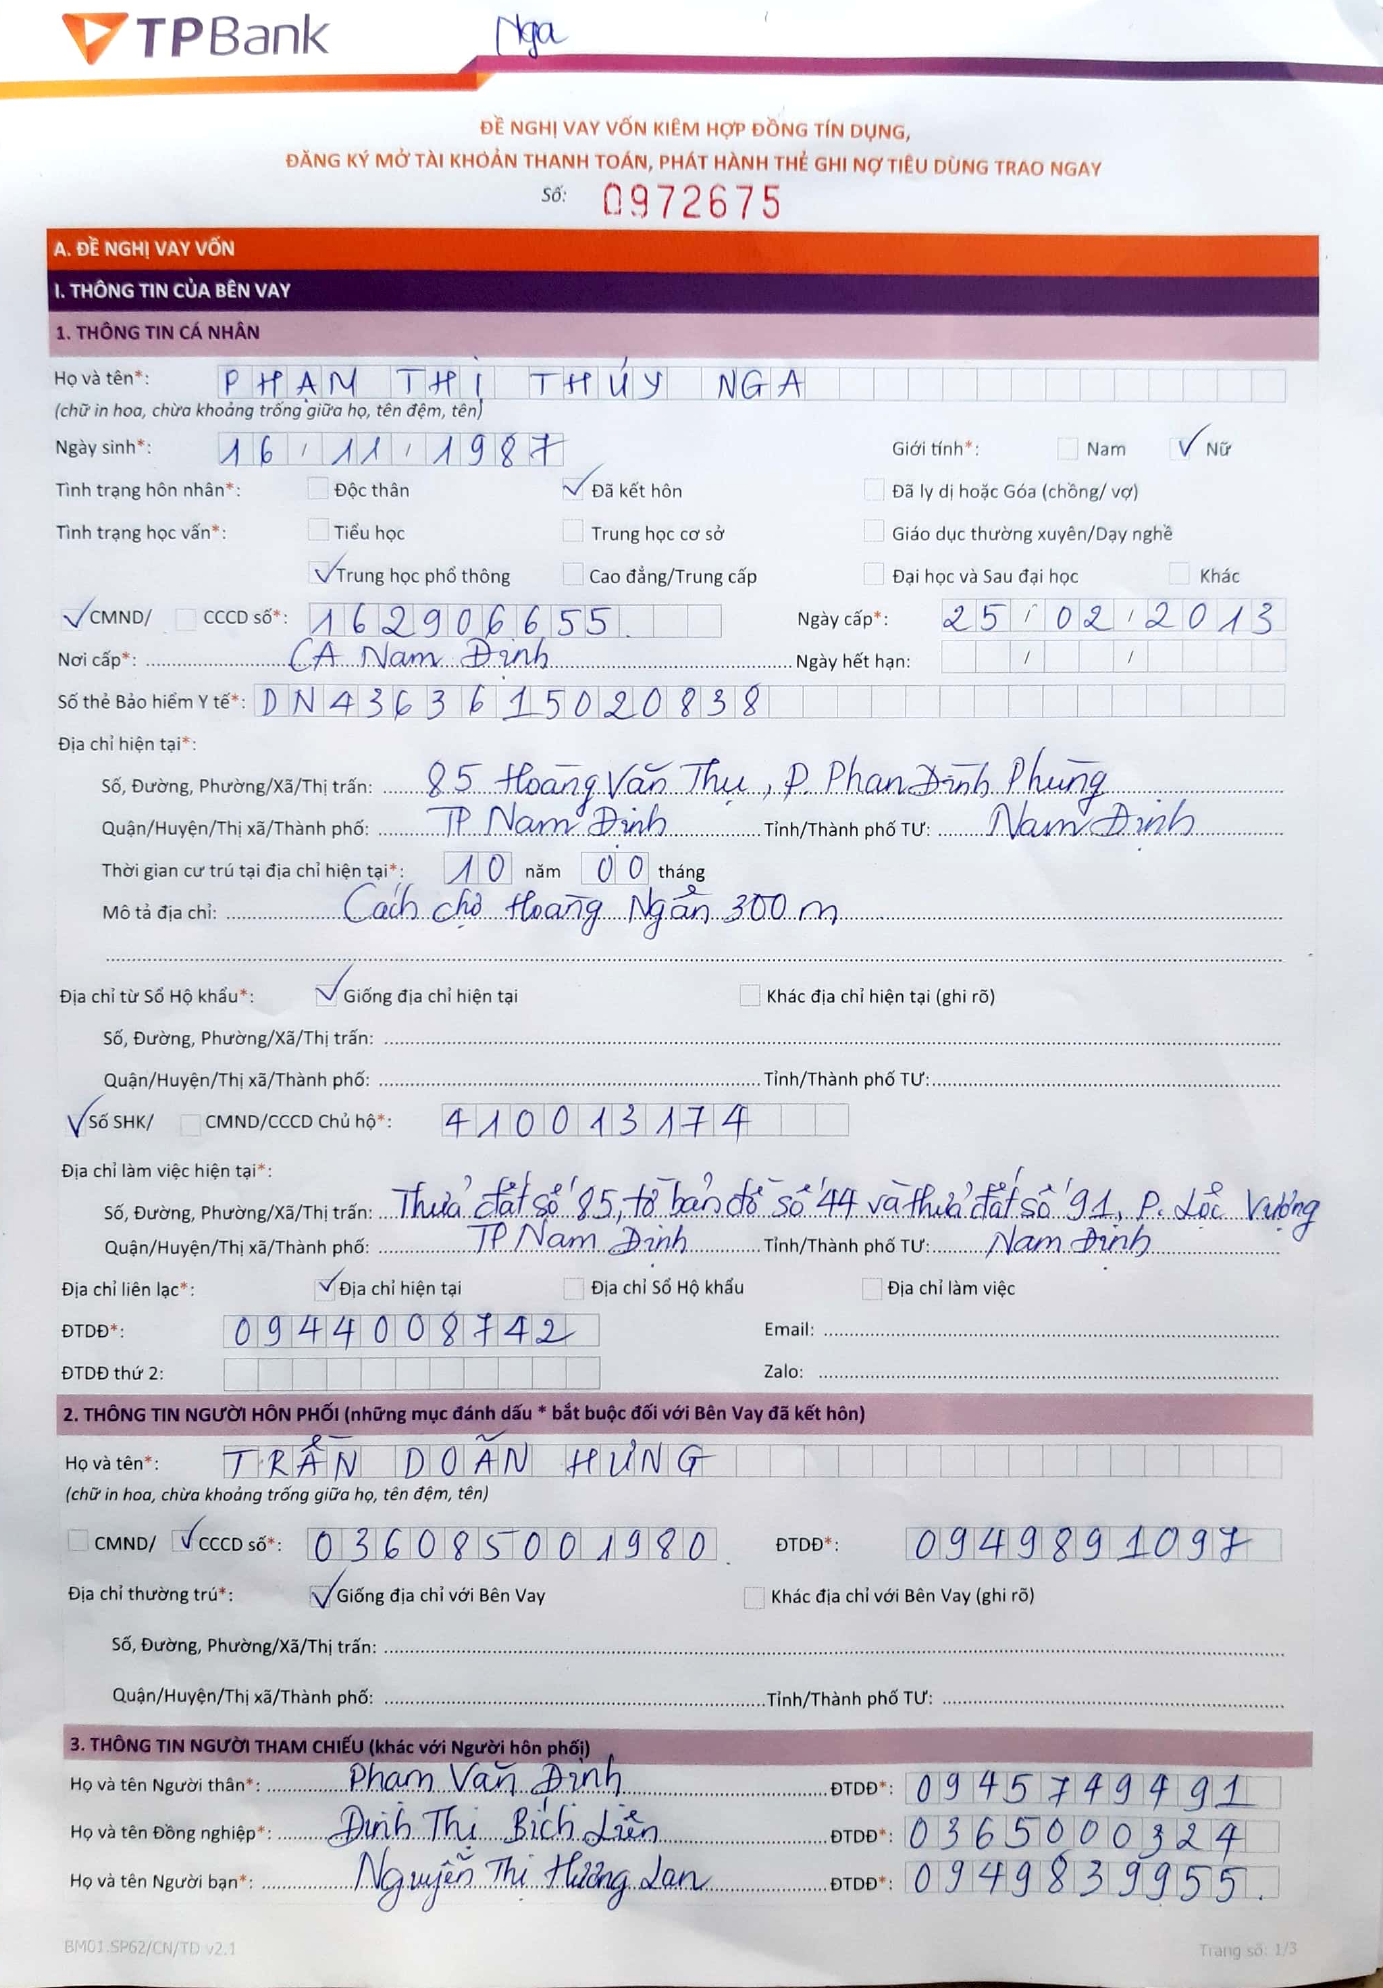 TPBank
Nga
ĐỀ NGHỊ VAY VỐN KIÊM HỢP ĐỒNG TÍN DỤNG,
ĐĂNG KÝ MỞ TÀI KHOẢN THANH TOÁN, PHÁT HÀNH THẺ GHI NỢ TIÊU DÙNG TRAO NGAY
Số: 0972675
A. ĐỀ NGHỊ VAY VỐN
I. THÔNG TIN CỦA BÊN VAY
1. THÔNG TIN CÁ NHÂN
Họ và tên*: PHẠM THỊ THÚY NGA
(chữ in hoa, chừa khoảng trống giữa họ, tên đệm, tên)
Ngày sinh*: 16/11/1987 Giới tính*: Nam Nữ
Tình trạng hôn nhân*: Độc thân Đã kết hôn Đã ly dị hoặc Góa (chồng/ vợ)
Tình trạng học vấn*: Tiểu học Trung học cơ sở Giáo dục thường xuyên/Dạy nghề
Trung học phổ thông Cao đẳng/Trung cấp Đại học và Sau đại học Khác
CMND/ CCCD số*: 162906655 Ngày cấp*: 25/02/2013
Nơi cấp*: CA Nam Định Ngày hết hạn: / /
Số thẻ Bảo hiểm Y tế*: DN4363615020838
Địa chỉ hiện tại*:
Số, Đường, Phường/Xã/Thị trấn: 85 Hoàng Văn Thụ, P. Phan Đình Phùng
Quận/Huyện/Thị xã/Thành phố: TP Nam Định Tỉnh/Thành phố TƯ: Nam Định
Thời gian cư trú tại địa chỉ hiện tại*: 10 năm 00 tháng
Mô tả địa chỉ: Cách chợ Hoàng Ngân 300 m
Địa chỉ từ Sổ Hộ khẩu*: Giống địa chỉ hiện tại Khác địa chỉ hiện tại (ghi rõ)
Số, Đường, Phường/Xã/Thị trấn:
Quận/Huyện/Thị xã/Thành phố: Tỉnh/Thành phố TƯ:
Số SHK/ CMND/CCCD Chủ hộ*: 410013174
Địa chỉ làm việc hiện tại*:
Số, Đường, Phường/Xã/Thị trấn: Thửa đất số 85, tờ bản đồ số 44 và thửa đất số 91, P. Lộc Vượng
Quận/Huyện/Thị xã/Thành phố: TP Nam Định Tỉnh/Thành phố TƯ: Nam Định
Địa chỉ liên lạc*: Địa chỉ hiện tại Địa chỉ Sổ Hộ khẩu Địa chỉ làm việc
ĐTDĐ*: 0944008742 Email:
ĐTDĐ thứ 2: Zalo:
2. THÔNG TIN NGƯỜI HÔN PHỐI (những mục đánh dấu * bắt buộc đối với Bên Vay đã kết hôn)
Họ và tên*: TRẦN DOÃN HƯNG
(chữ in hoa, chừa khoảng trống giữa họ, tên đệm, tên)
CMND/ CCCD số*: 036085001980 ĐTDĐ*: 0949891097
Địa chỉ thường trú*: Giống địa chỉ với Bên Vay Khác địa chỉ với Bên Vay (ghi rõ)
Số, Đường, Phường/Xã/Thị trấn:
Quận/Huyện/Thị xã/Thành phố: Tỉnh/Thành phố TƯ:
3. THÔNG TIN NGƯỜI THAM CHIẾU (khác với Người hôn phối)
Họ và tên Người thân*: Phạm Văn Định ĐTDĐ*: 0945749491
Họ và tên Đồng nghiệp*: Đinh Thị Bích Liên ĐTDĐ*: 0365000324
Họ và tên Người bạn*: Nguyễn Thị Hương Lan ĐTDĐ*: 0949839955
BM01.SP62/CN/TD v2.1 Trang số: 1/3